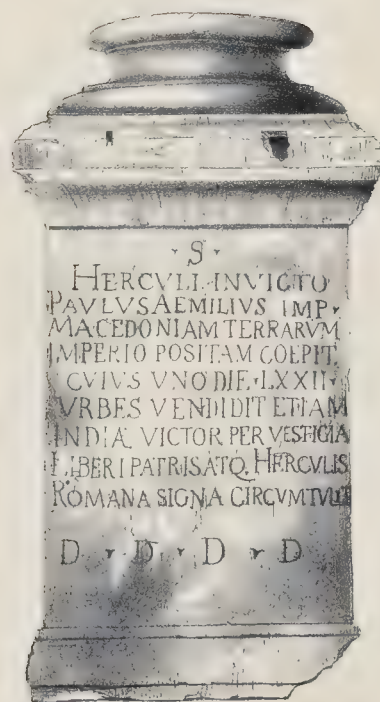 · S ·
HERCVLI · INVICTO
PAVLVS AEMILIVS IMP ·
MACEDONIAM TERRARVM
IMPERIO POSITAM COEPIT
CVIVS VNO DIE · LXXII ·
VRBES VENDIDIT ETIAM
INDIÆ VICTOR PER VESTIGIA
LIBERI PATRIS ATQ. HERCVLIS
ROMANA SIGNA CIRCVMTVLIT
D · D · D · D